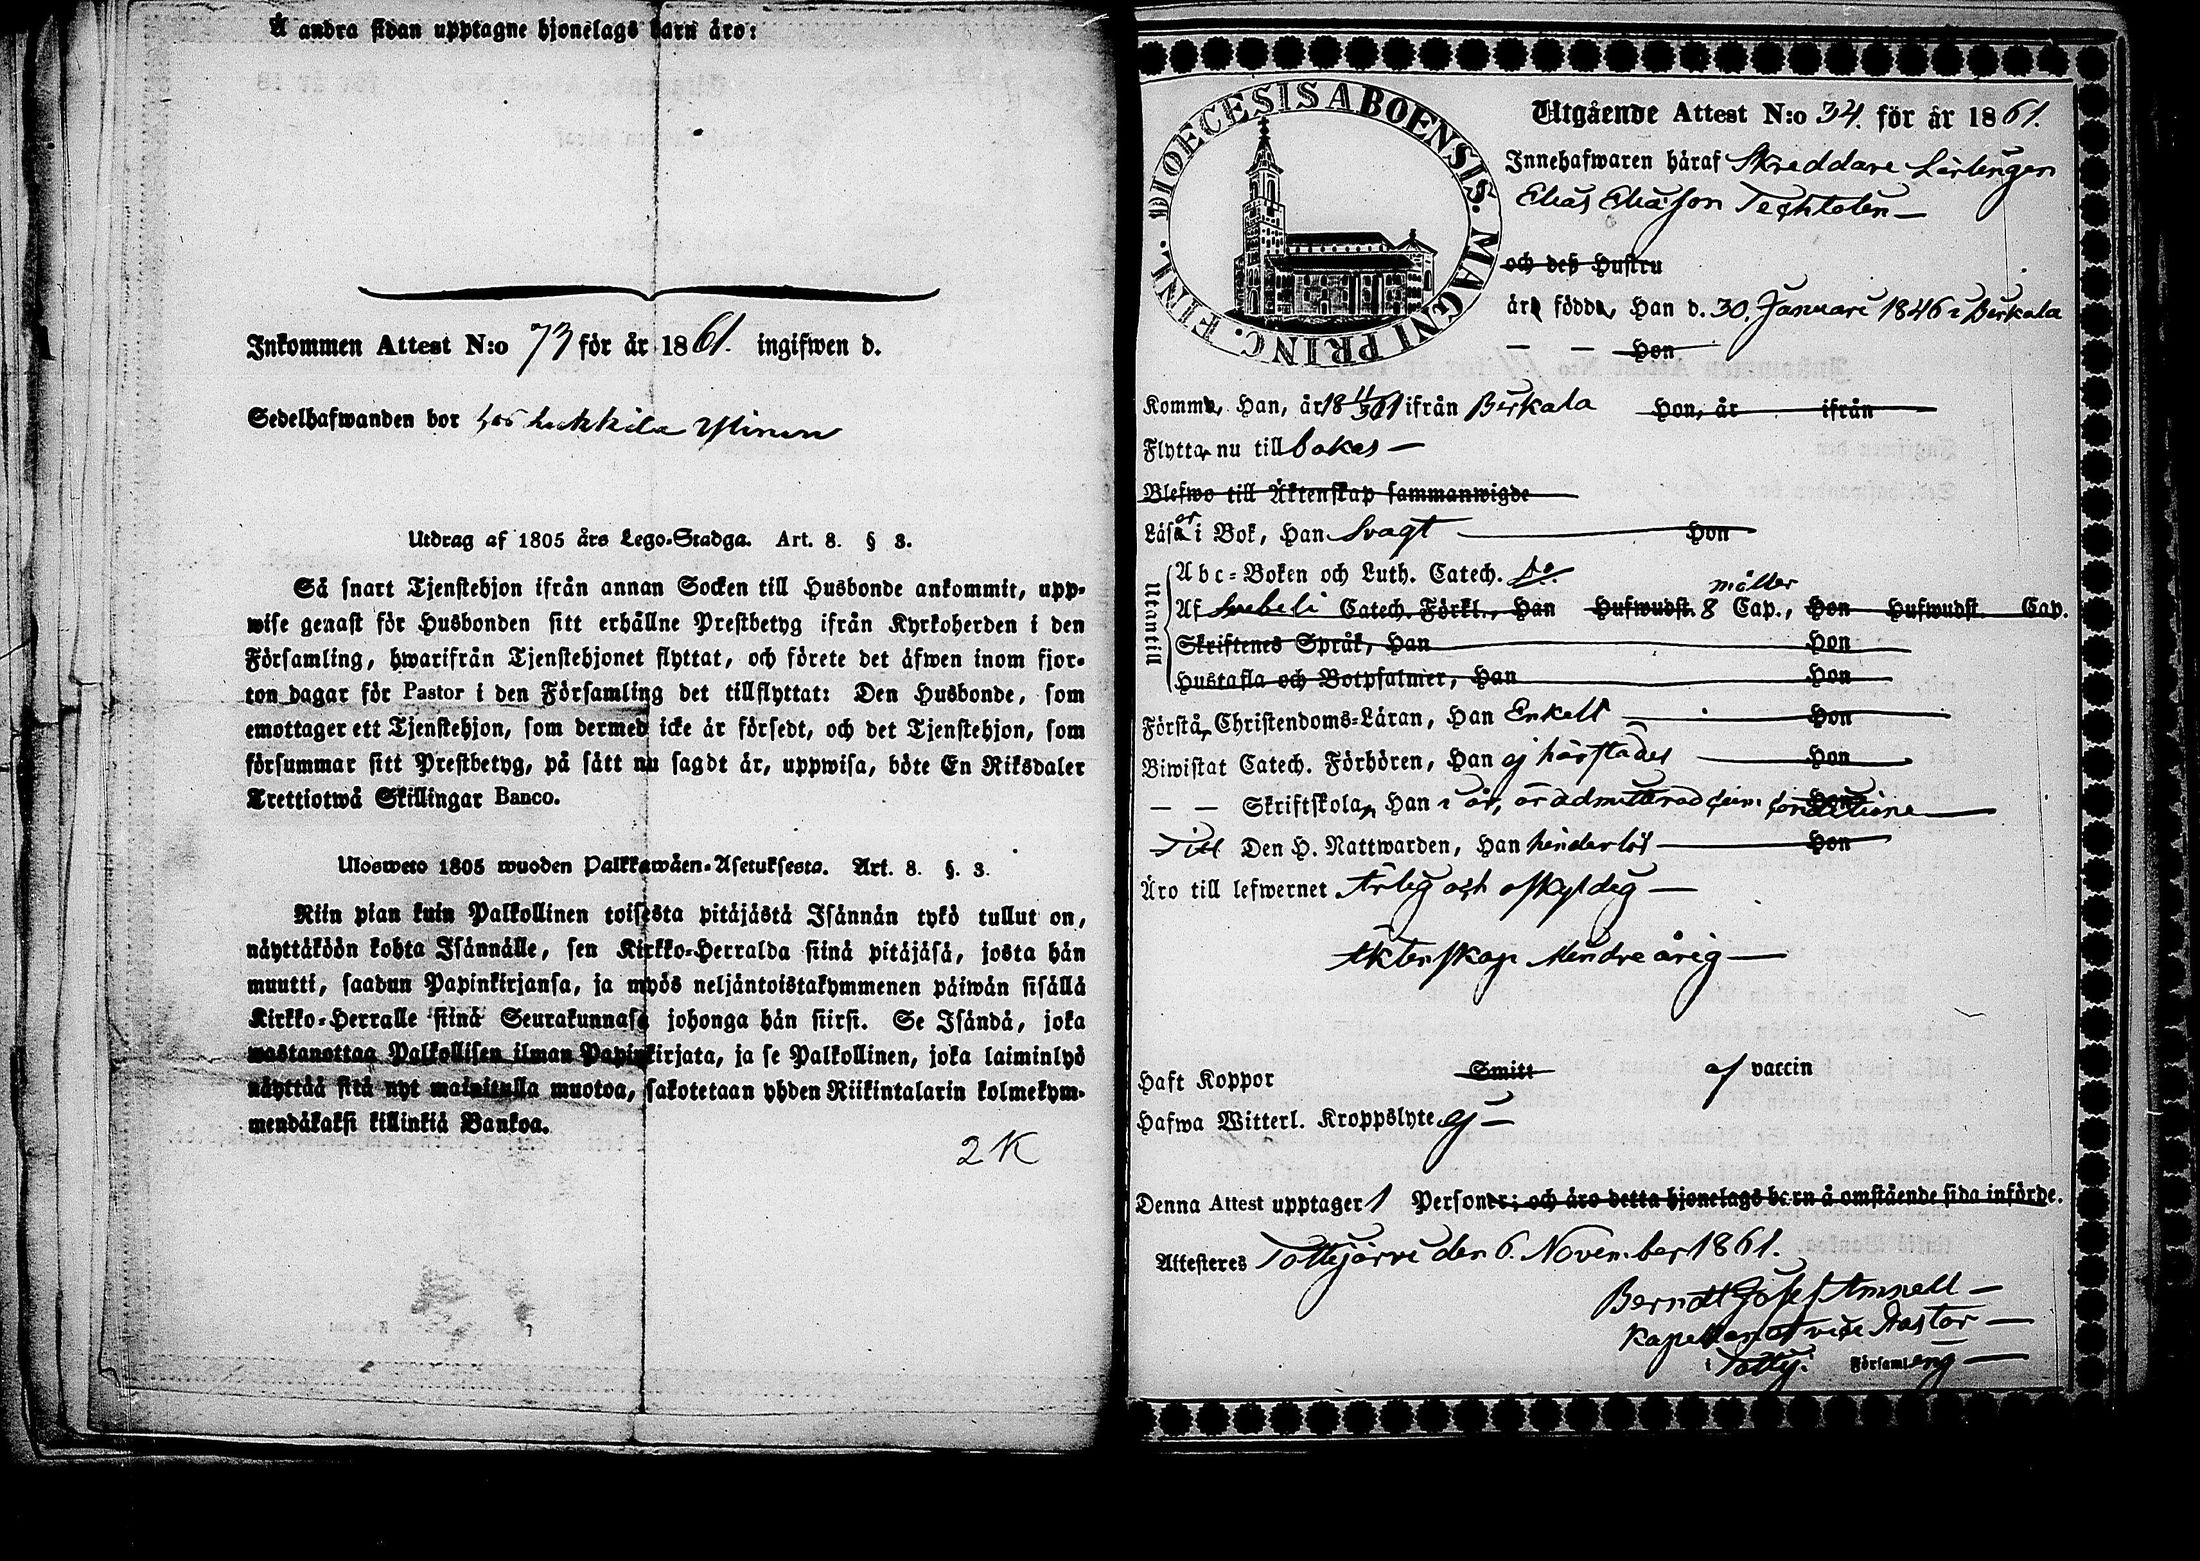 Å andra sidan upptagne hjonelags barn äro:
Inkommen Attest N:o 73 för år 1861. ingifwen d.
Sedelhafwanden bor hos
Utdrag af 1805 års Lego-Stadga. Art. 8. § 3.
Så snart Tjenstehjon ifrån annan Socken till Husbonde ankommit, upp-
wise genast för Husbonden sitt erhållne Prestbetyg ifrån Kyrkoherden i den
Församling, hwarifrån Tjenstehjonet flyttat, och förete det äfwen inom fjor-
ton dagar för Pastor i den Församling det tillflyttat: Den Husbonde, som
emottager ett Tjenstehjon, som dermed icke är försedt, och det Tjenstehjon, som
försummar sitt Prestbetyg, på sätt nu sagdt är, uppwisa, böte En Riksdaler
Trettiotwå Skillingar Banco.
Ulosweto 1805 wuoden Palkkawäen-Asetuksesta. Art. 8. §. 3.
Niin pian kuin Palkollinen toisesta pitäjästä Isännän tykö tullut on,
näyttäköön kohta Isännälle, sen Kirkko-Herralda siinä pitäjäsä, josta hän
muutti, saadun Papinkirjansa, ja myös neljäntoistakymmenen päiwän sisällä
Kirkko-Herralle siinä Seurakunnasa johonga hän siirsi. Se Isändä, joka
wastanottaa Palkollisen ilman Papinkirjata, ja se Palkollinen, joka laiminlyö
näyttää sitä nyt mainitulla muotoa, sakotetaan yhden Riikintalarin kolmekym-
mendäkaksi killinkiä Bankoa.
2 K
DIOECESIS ABOENSIS. MAGNI PRINC. FINL.
Utgående Attest N:o 34. för år 1861.
Innehafwaren häraf Skreddare Lärlingen
Elias Eliasson
och deß Hustru
äro födde, Han d. 30. Januari 1846 i Birkala
— — Hon
Komme, Han, år 18 11/3 61 ifrån Birkala Hon, år ifrån
Flytta nu till
Blefwo till Äktenskap sammanwigde
Läser i Bok, Han Svagt Hon
Utantill
Abc-Boken och Luth. Catech. do.
Af Svebeli Catech. Förkl., Han Hufwudst. 8 Cap., Hon Hufwudst. Cap.
Skriftenes Språk, Han Hon
Hustafla och Botpsalmer, Han Hon
Förstå, Christendoms-Läran, Han Enkelt Hon
Biwistat Catech. Förhören, Han ej härstädes Hon
— — Skriftskola, Han i år, är admitterad cum conditione Hon
Till Den H. Nattwarden, Han hinderlös Hon
Äro till lefwernet Ärlig och oskyldig —
Äktenskap Mindreårig —
Haft Koppor Smitt af vaccin
Hafwa Witterl. Kroppslyte ej —
Denna Attest upptager 1 Personer; och äro detta hjonelags barn å omstående sida införde.
Attesteres Tottijärvi den 6. November 1861.
Berndt Josef Amnell —
Kapellan o vice Pastor —
i Totty. Församling —